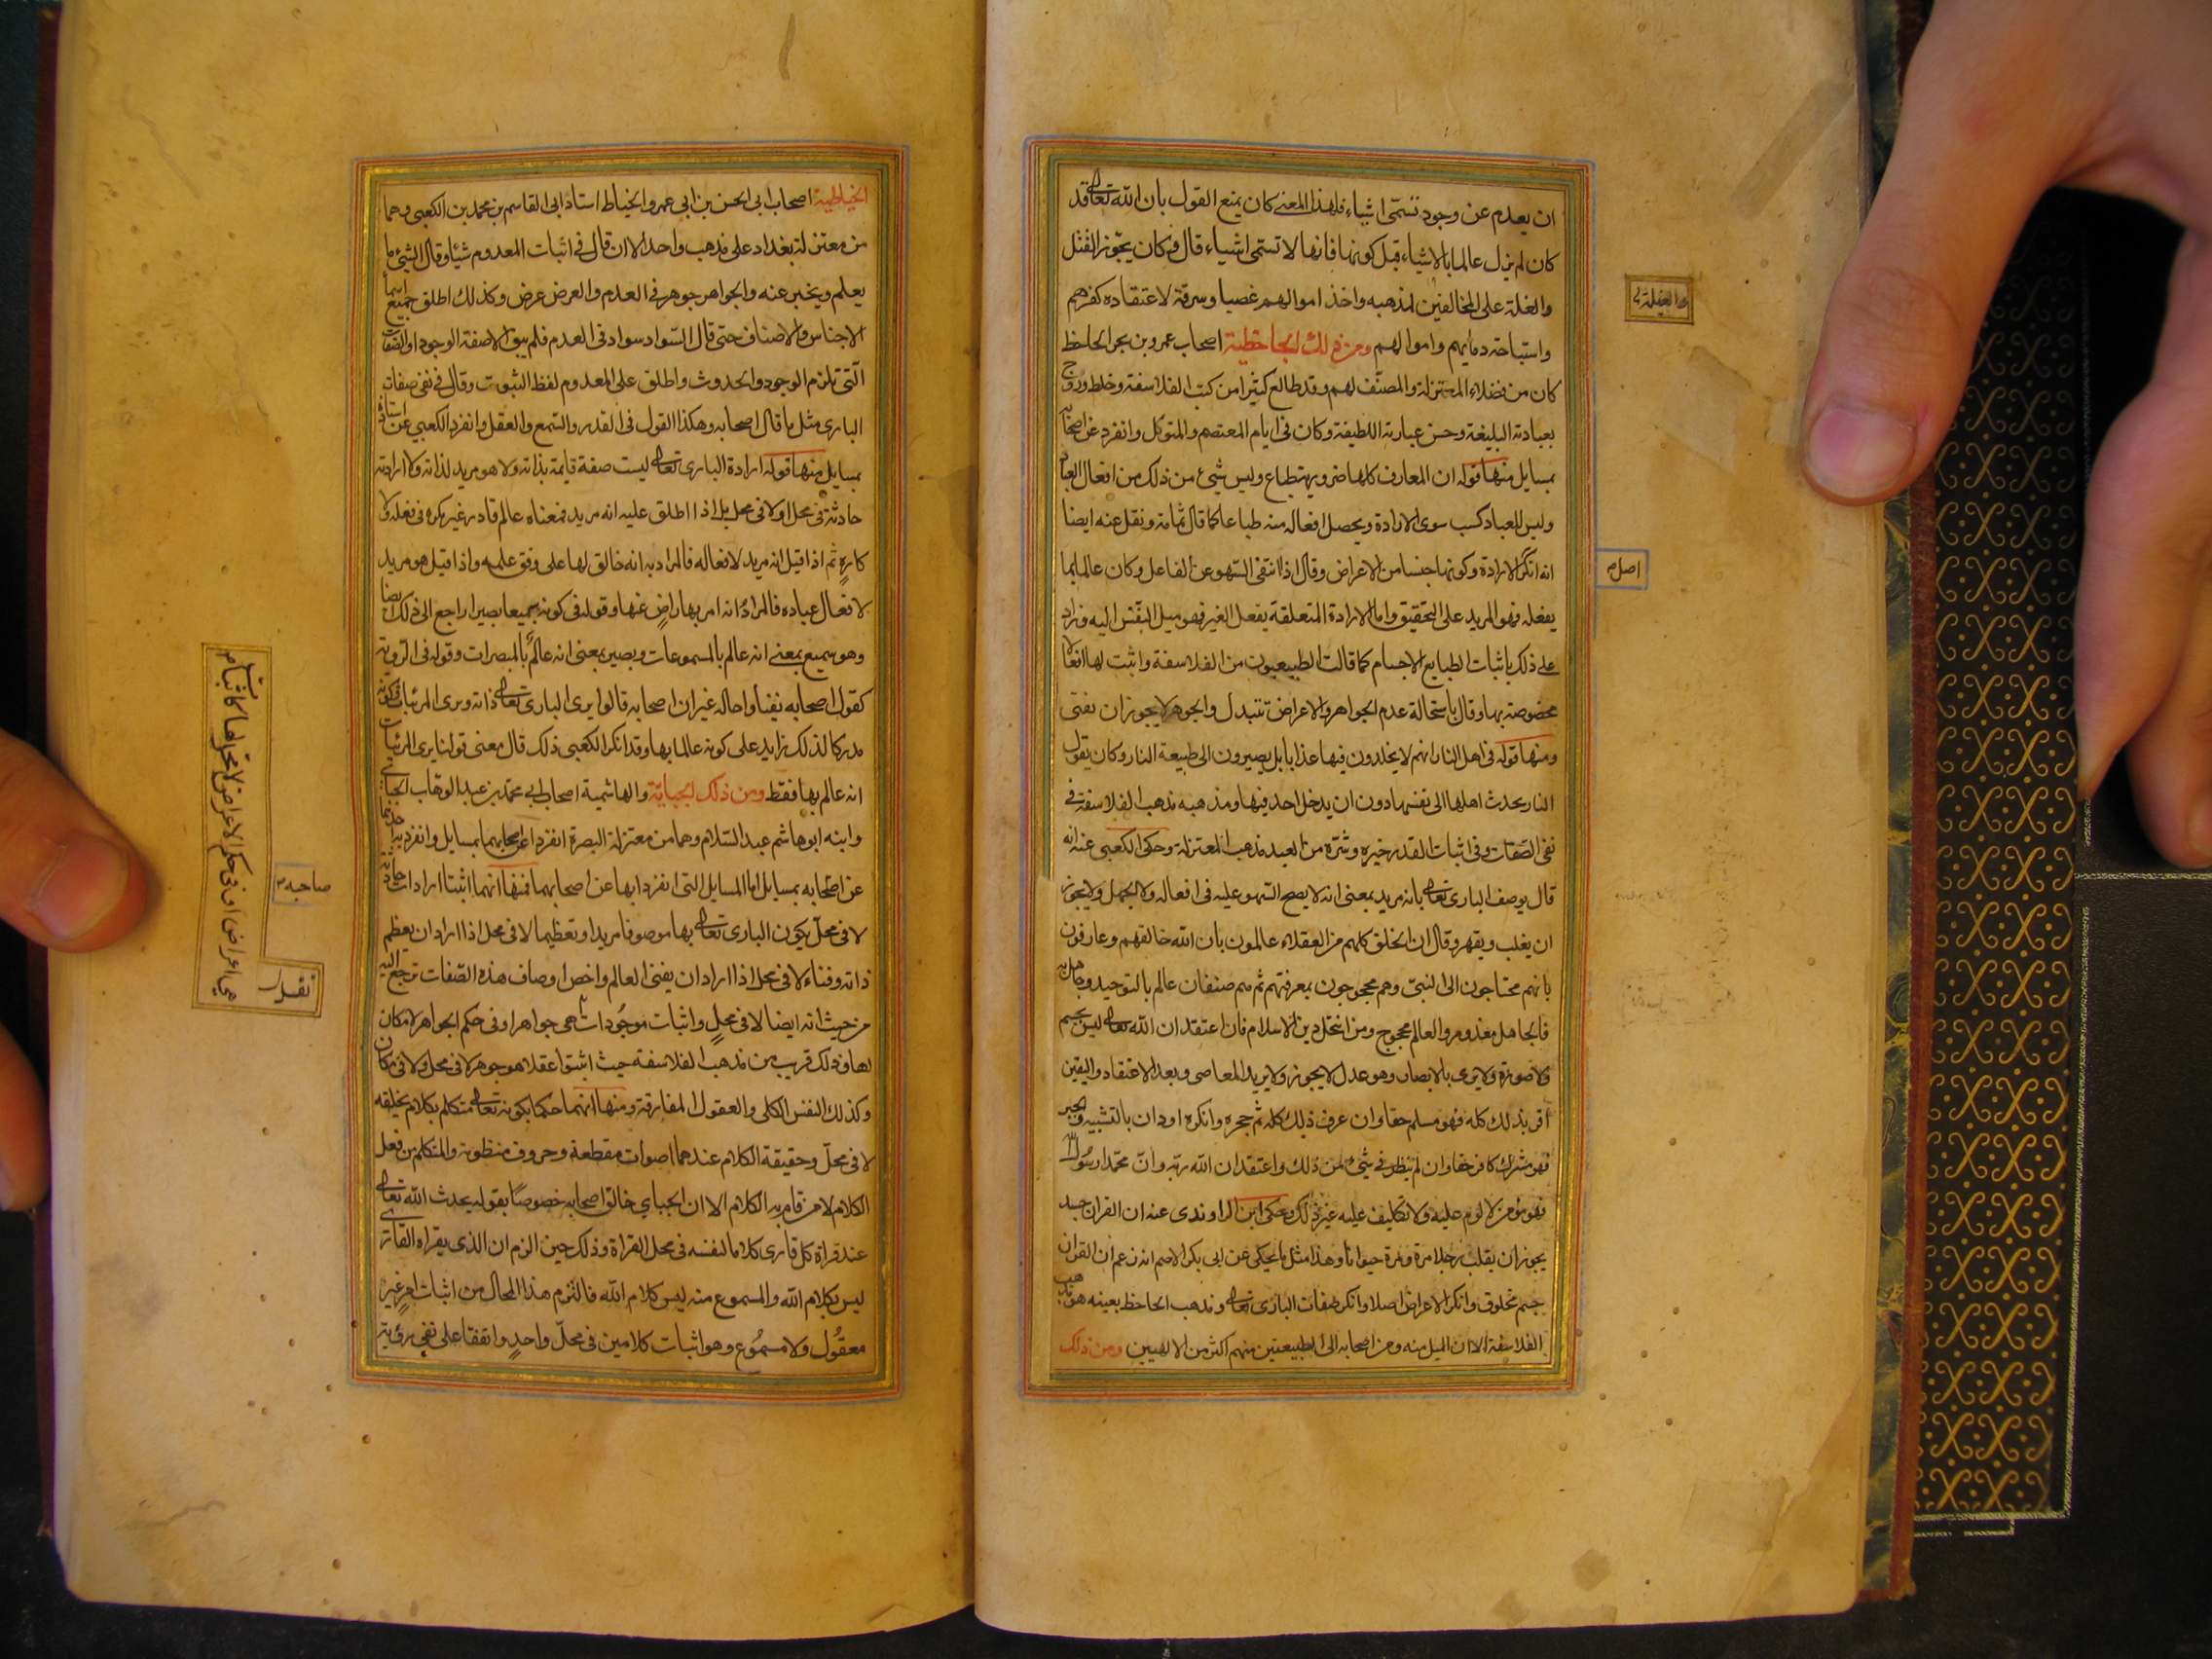 ان يعدم عن وجود تسمّى اشياء فلهذا المعنى كان يمنع القول بان الله تعالى قد
كان لم يزل عالما بالاشياء قبل كونها فانها لا تسمى اشياء قال وكان يجوّز القتل
والغلة على المخالفين لمذهبه واخذ اموالهم غصبا وسرقة لاعتقاده كفرهم
واستباحة دمايهم واموالهم ومن ذلك الجاحظية اصحاب عمرو بن بحر الجاحظ
كان من فضلاء المعتزلة والمصنّف لهم وقد طالع كثيرا من كتب الفلاسفة وخلط وروج
بعبادته البليغة وحسن عبارته اللطيفة وكان فى ايام المعتصم والمتوكل وانفرد عن اصحابه
بمسايل منها قوله ان المعارف كلها ضرورية طباع وليس شئ من ذلك من افعال العباد
وليس للعباد كسب سوى الارادة ويحصل افعاله منه طباعا كما قال ثمامة ونقل عنه ايضا
انه انكر الارادة وكونها جنسا من الاعراض وقال اذا انتفى السهو عن الفاعل وكان عالما بما
يفعله فهو المريد على التحقيق واما الارادة المتعلقة بفعل الغير فهو ميل النفس اليه وزاد
على ذلك باثبات الطبايع الاجسام كما قالت الطبيعيون من الفلاسفة واثبت لها افعالا
مخصوصة بها وقال باستحالة عدم الجواهر والاعراض تتبدل والجوهر لا يجوز ان يفنى
ومنها قوله فى اهل النار انهم لا يخلدون فيها عذابا بل يصيرون الى طبيعة النار وكان يقول
النار يحدث اهلها الى نفسها دون ان يدخل احد فيها ومذهبه مذهب الفلاسفة فى
نفى الصّفات وفى اثبات القدر خيره وشرّه من العبد مذهب المعتزلة وحكى الكعبى عنه انه
قال يوصف البارى تعالى بانه مريد بمعنى انه لا يصح السهو عليه فى افعاله ولا الجهل ولا يجوز
ان يغلب ويقهر وقال ان الخلق كلهم من العقلاء عالمون بان الله خالقهم وعارفون
بانهم محتاجون الى النبىّ وهم محجوجون بمعرفتهم ثم هم صنفان عالم بالتوحيد وجاهل به
فالجاهل معذور والعالم محجوج ومن انتحل دين الاسلام فان اعتقد ان الله تعالى ليس بجسم
ولا صورة ولا يرى بالابصار وهو عدل لا يجوز ولا يريد المعاصى وبعد الاعتقاد واليقين
اقر بذلك كله فهو مسلم حقا وان عرف ذلك كله ثم جحره وانكره او دان بالتشبيه والجبر
فهو مشرك كافر حقا وان لم ينظر فى شئ من ذلك واعتقد ان الله ربّه وانّ محمّدا رسول الله
فهو مؤمن لا لوم عليه ولا تكليف عليه غير ذلك وحكى ابن الراوندى عنه ان القران جسد
يجوز ان يقلب رجلا مرة ومرة حيوانا وهذا مثل ما يحكى عن ابى بكر الاصم انه زعم ان القران
جسم مخلوق وانكر الاعراض اصلا وانكر صفات البارى تعالى ومذهب الجاحظ بعينه هو مذهب
الفلاسفة الا ان الميل منه ومن اصحابه الى الطبيعيين منهم اكثر من الالهيين ومن ذلك
اصل م
الخياطية اصحاب ابى الحسن بن ابى عمرو الخياط استاد ابى القاسم بن محمد بن الكعبى وهما
من معتزلة بغداد على مذهب واحد الا ان قال فى اثبات المعدوم شيئا وقال الشئ ما
يعلم ويخبر عنه والجواهر جوهر فى العدم والعرض عرض وكذلك اطلق جميع اسماء
الاجناس والاصناف حتى قال السّواد سواد فى العدم فلم يبق الا صفة الوجود او الصّفات
الّتى تلزم الوجود والحدوث واطلق على المعدوم لفظ الثبوت وقال فى نفى صفات
البارى مثل ما قال اصحابه وهكذا القول فى القدر والسّمع والعقل وانفرد الكعبى عن استاده
بمسايل منها قوله ارادة البارى تعالى ليست صفة قايمة بذاته ولا هو مريد لذاته ولا ارادته
حادثة فى محل او لا فى محل بل اذا اطلق عليه انه مريد فمعناه عالم قادر غير مكره فى فعله ولا
كارهٍ ثم اذا قيل انه مريد لافعاله فالمراد به انه خالق لها على وفق علمه واذا قيل هو مريد
لافعال عباده فالمرادُ انه امر بها راضٍ عنها وقوله فى كونه سميعا بصيرا راجع الى ذلك ايضا
وهو سميع بمعنى انه عالم بالمسموعات وبصير بمعنى انه عالم بالمبصرات وقوله فى الرّوية
كقول اصحابه نفيا واحاله غير ان اصحابه قالوا يرى البارى تعالى ذاته ويرى المرئيات وكونه
مدركا لذلك زايد على كونه عالما بها وقد انكر الكعبى ذلك قال معنى قولنا يرى المرئيات
انه عالم بها فقط ومن ذلك الجبايّة والهاشمية اصحاب ابى محمّد بن عبد الوهّاب الجباى
وابنه ابو هاشم عبد السّلام وهما من معتزلة البصرة انفردا عن اصحابهما بمسايل وانفرد احدهما
عن اصحابه بمسايل اما المسايل التى انفردا بها عن اصحابهما فمنها انهما اثبتا ارادات حادثة
لا فى محلّ يكون البارى تعالى بها موصوفا مريدا وتعظيما لا فى محل اذا اراد ان يعظم
ذاته وفناء لا فى محل اذا اراد ان يفنى العالم واخص اوصاف هذه الصّفات ترجع اليه
من حيث انه ايضا لا فى محلٍ واثبات موجُودات هى جواهر او فى حكم الجواهر لا مكان
لها وذلك قريب من مذهب الفلاسفة حيث اثبتوا عقلا هو جوهر لا فى محل ولا فى مكان
وكذلك النفس الكلى والعقول المفارقة ومنها انهما حكما بكونه تعالى متكلم بكلام يخلقه
لا فى محلّ وحقيقة الكلام عندهما اصوات مقطعة وحروف منظومة والمتكلم من فعل
الكلام لا من قام به الكلام الا ان الجباي خالف اصحابه خصوصًا بقوله يحدث الله تعالى
عند قراة كل قارى كلاما لنفسه فى محل القراة وذلك حين الزم ان الذى يقراه القارى
ليس بكلام الله والمسموع منه ليس كلام الله فالتزم هذا المحال من اثبات امرٍ غير
معقُول ولا مسمُوع وهو اثبات كلامين فى محلّ واحدٍ واتفقا على نفى رؤية
صاحبه م